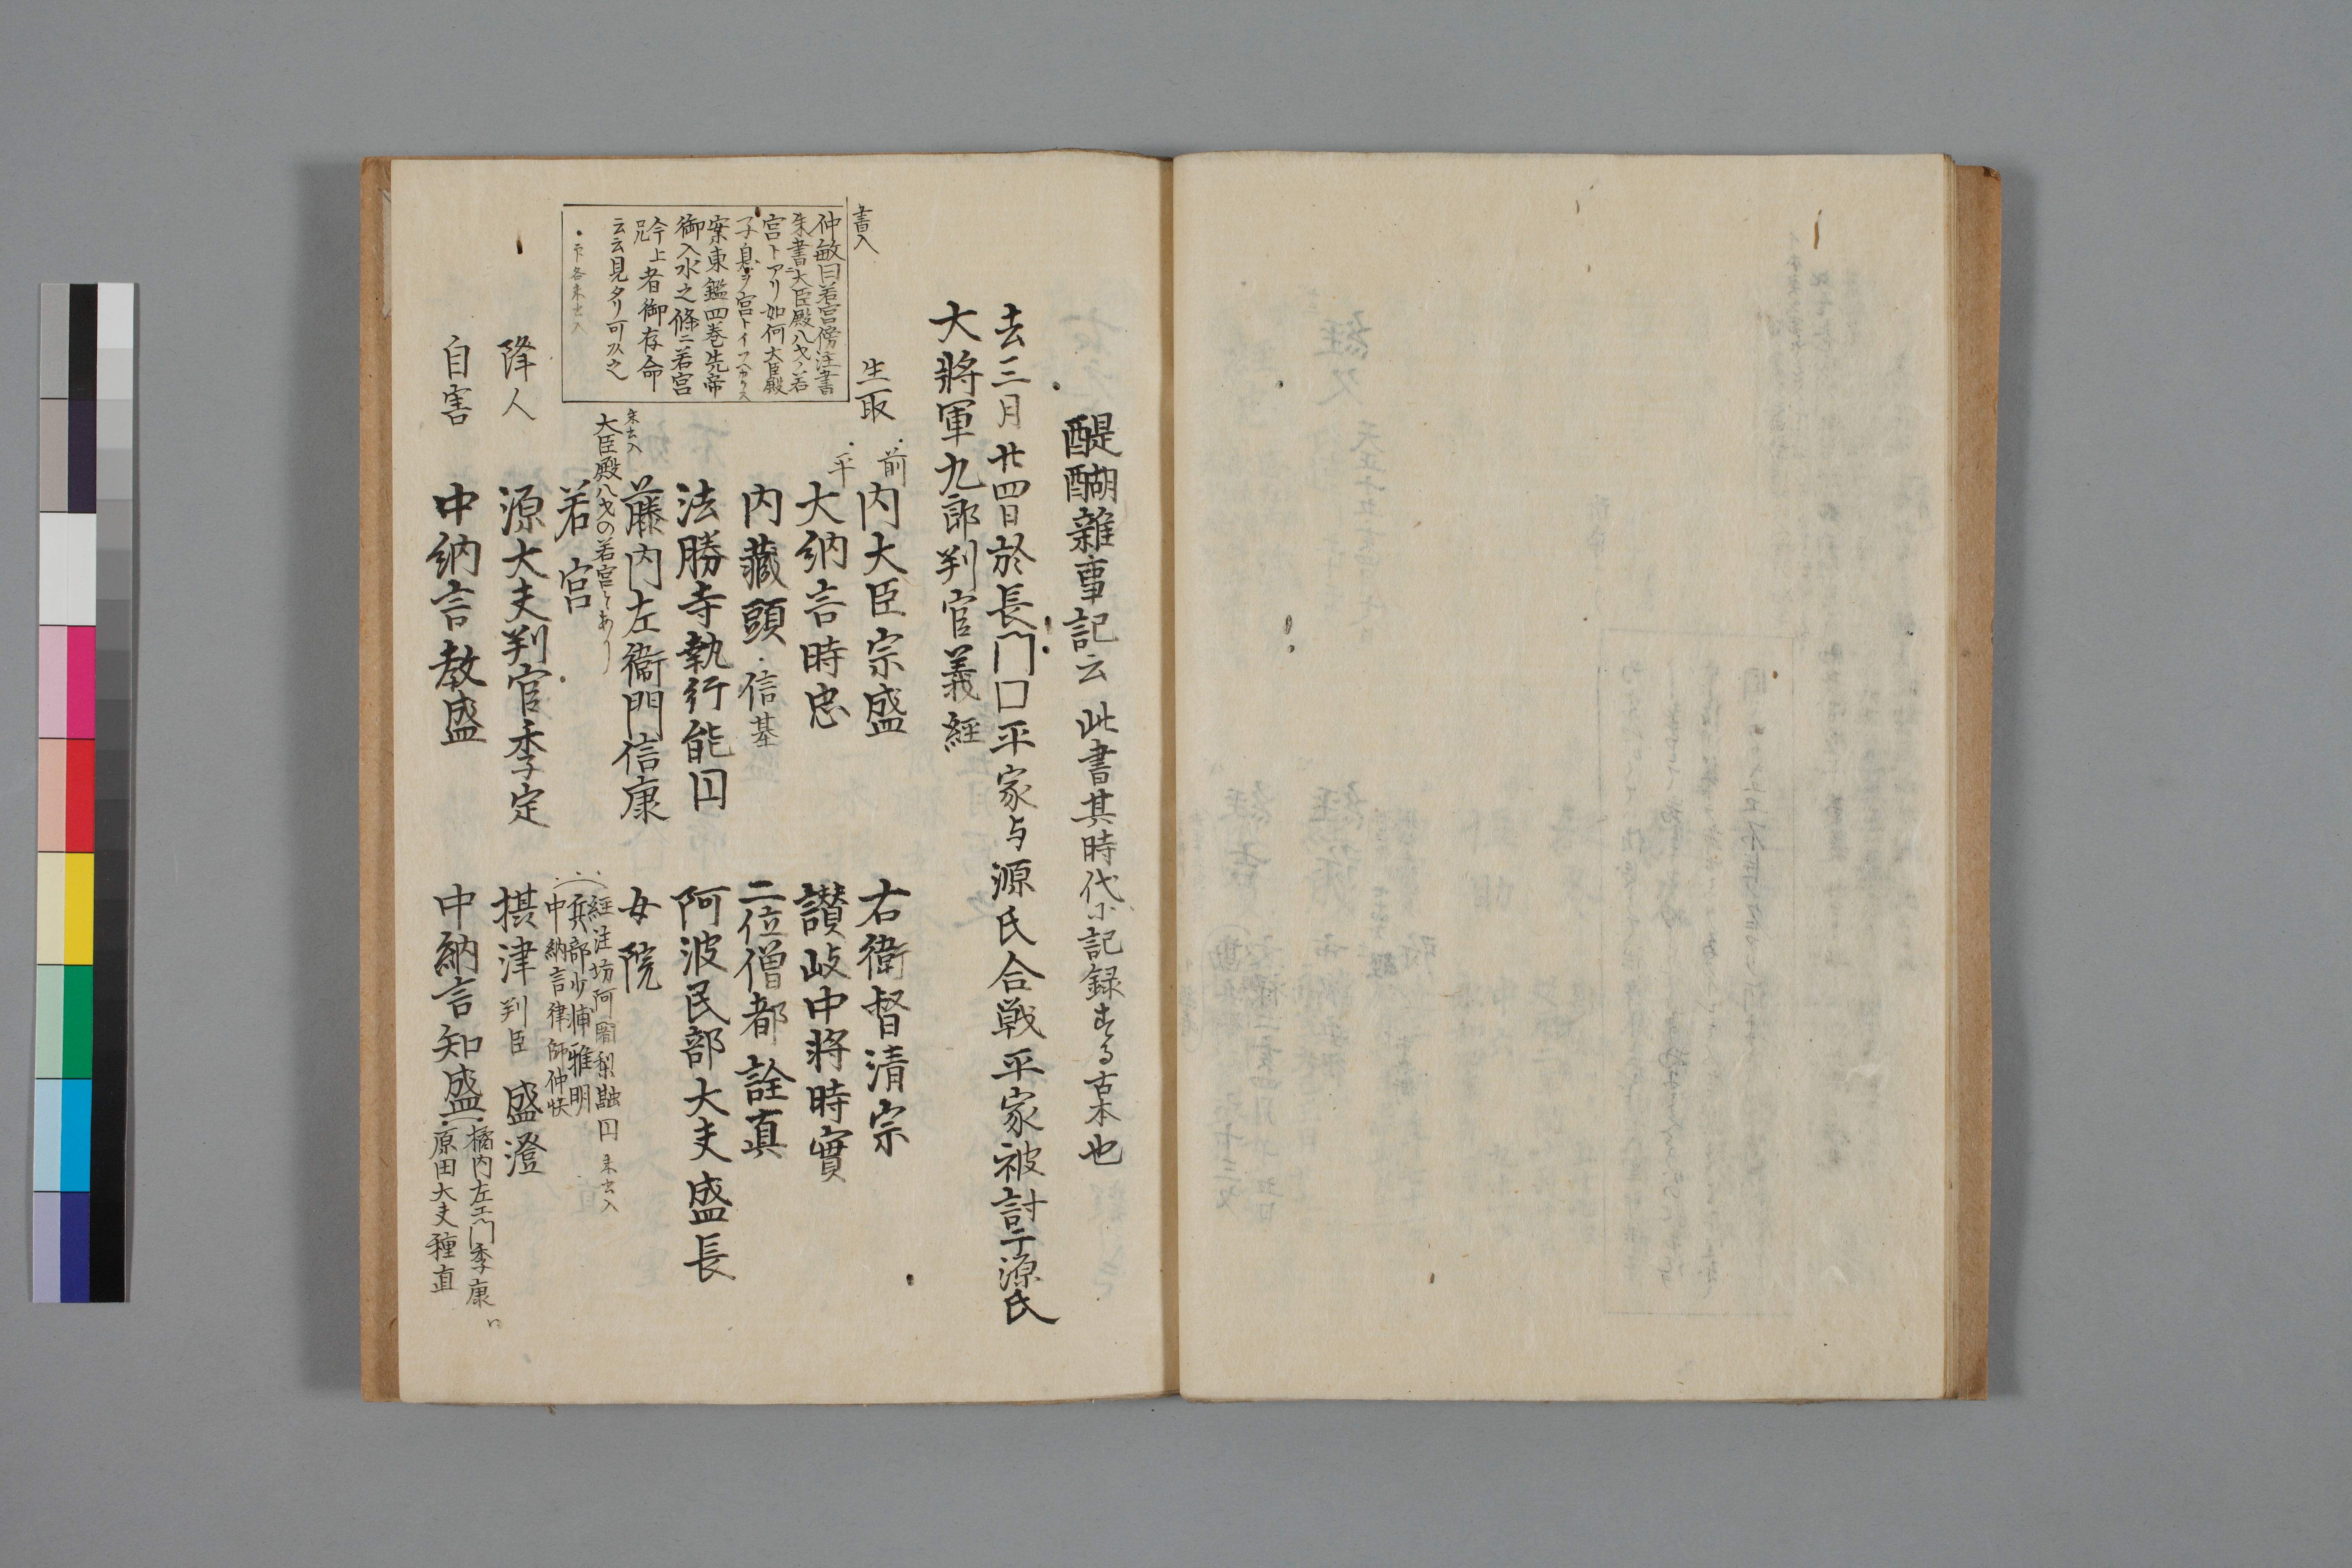 醍醐雜事記云 此書其時代に記録する古本也
去三月廿四日於長門口平家与源氏合戦平家被討于源氏
大將軍九郎判官義經
書入
仲敏曰若宮傍注書
朱書大臣殿八才ノ若
宮トアリ如何大臣殿
子息ヲ宮ト
案東鑑四巻先帝
御入水之條ニ若宮
今上
兄
者御存命
云云見タリ可以之
生取
前内大臣宗盛 右衛督清宗
平大納言時忠 讃岐中將時實
内藏頭信基 二位僧都詮真
法勝寺執行能円 阿波民部大夫盛長
藤内左衞門信康 女院
朱書入
大臣殿八才の若宮とあり
若宮
経注坊阿闍梨融円 朱書入
兵部少輔雅明
中納言律師仲快
降人 源大夫判官季定 摂津判臣 盛澄
自害 中納言教盛 中納言知盛
橘内左エ門季康
原田大夫種直